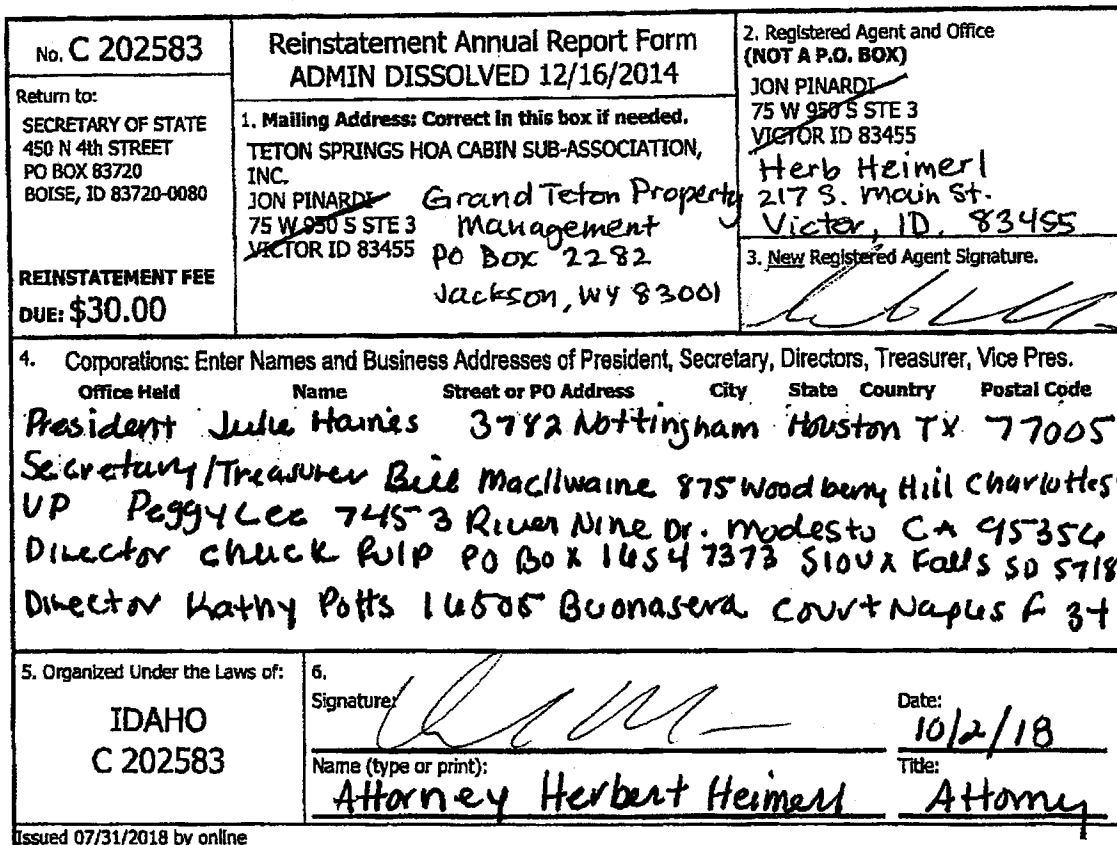 No. C 202583
Return to:
SECRETARY OF STATE
450 N 4th STREET
PO BOX 83720
BOISE, ID 83720-0080
REINSTATEMENT FEE
DUE: $30.00
Reinstatement Annual Report Form
ADMIN DISSOLVED 12/16/2014
1. Mailing Address: Correct in this box if needed.
TETON SPRINGS HOA CABIN SUB-ASSOCIATION,
INC.
JON PINARDI
75 W 950 S STE 3
VICTOR ID 83455
Grand Teton Property
Management
PO Box 2282
Jackson, WY 83001
2. Registered Agent and Office
(NOT A P.O. BOX)
JON PINARDI
75 W 950 S STE 3
VICTOR ID 83455
Herb Heimerl
217 S. Main St.
Victor, ID. 83455
3. New Registered Agent Signature.
4. Corporations: Enter Names and Business Addresses of President, Secretary, Directors, Treasurer, Vice Pres.
Office Held Name Street or PO Address City State Country Postal Code
President Julie Haines 3782 Nottingham Houston TX 77005
Secretary/Treasurer Bill MacIlwaine 875 Woodberry Hill Charlottes
VP Peggy Lee 7453 River Nine Dr. Modesto CA 95356
Director Chuck PO Box 7373 Sioux Falls SD 5718
Director Kathy Potts 16505 Buonasera Court Naples F 34
5. Organized Under the Laws of:
IDAHO
C 202583
6.
Signature:
Date:
10/2/18
Name (type or print):
Attorney Herbert Heimerl
Title:
Attorny
Issued 07/31/2018 by online